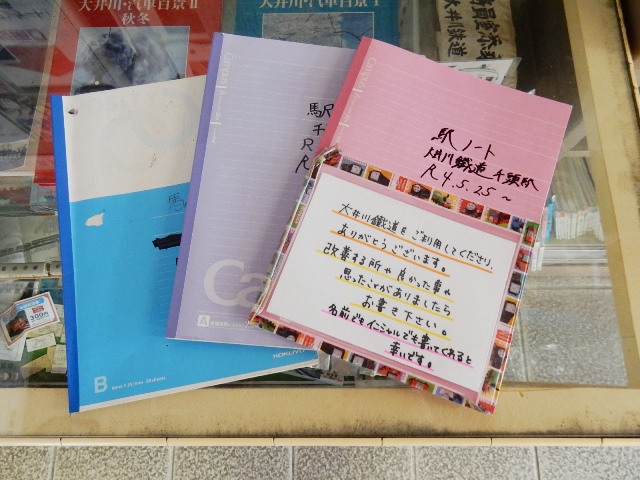 大井川・汽車百景 II
秋冬
大井川・汽車百景 I
大井川鐵道
Campus
Campus
駅ノート
大井川鐵道 千頭駅
R4.5.25～
駅
千
R
大井川鐵道をご利用してくださり、
ありがとうございます。
改善する所や良かった事や
思ったことがありましたら
お書き下さい。
名前でもイニシャルでも書いてくれると
幸いです。
300円
Ca
A
KOKUYO
B